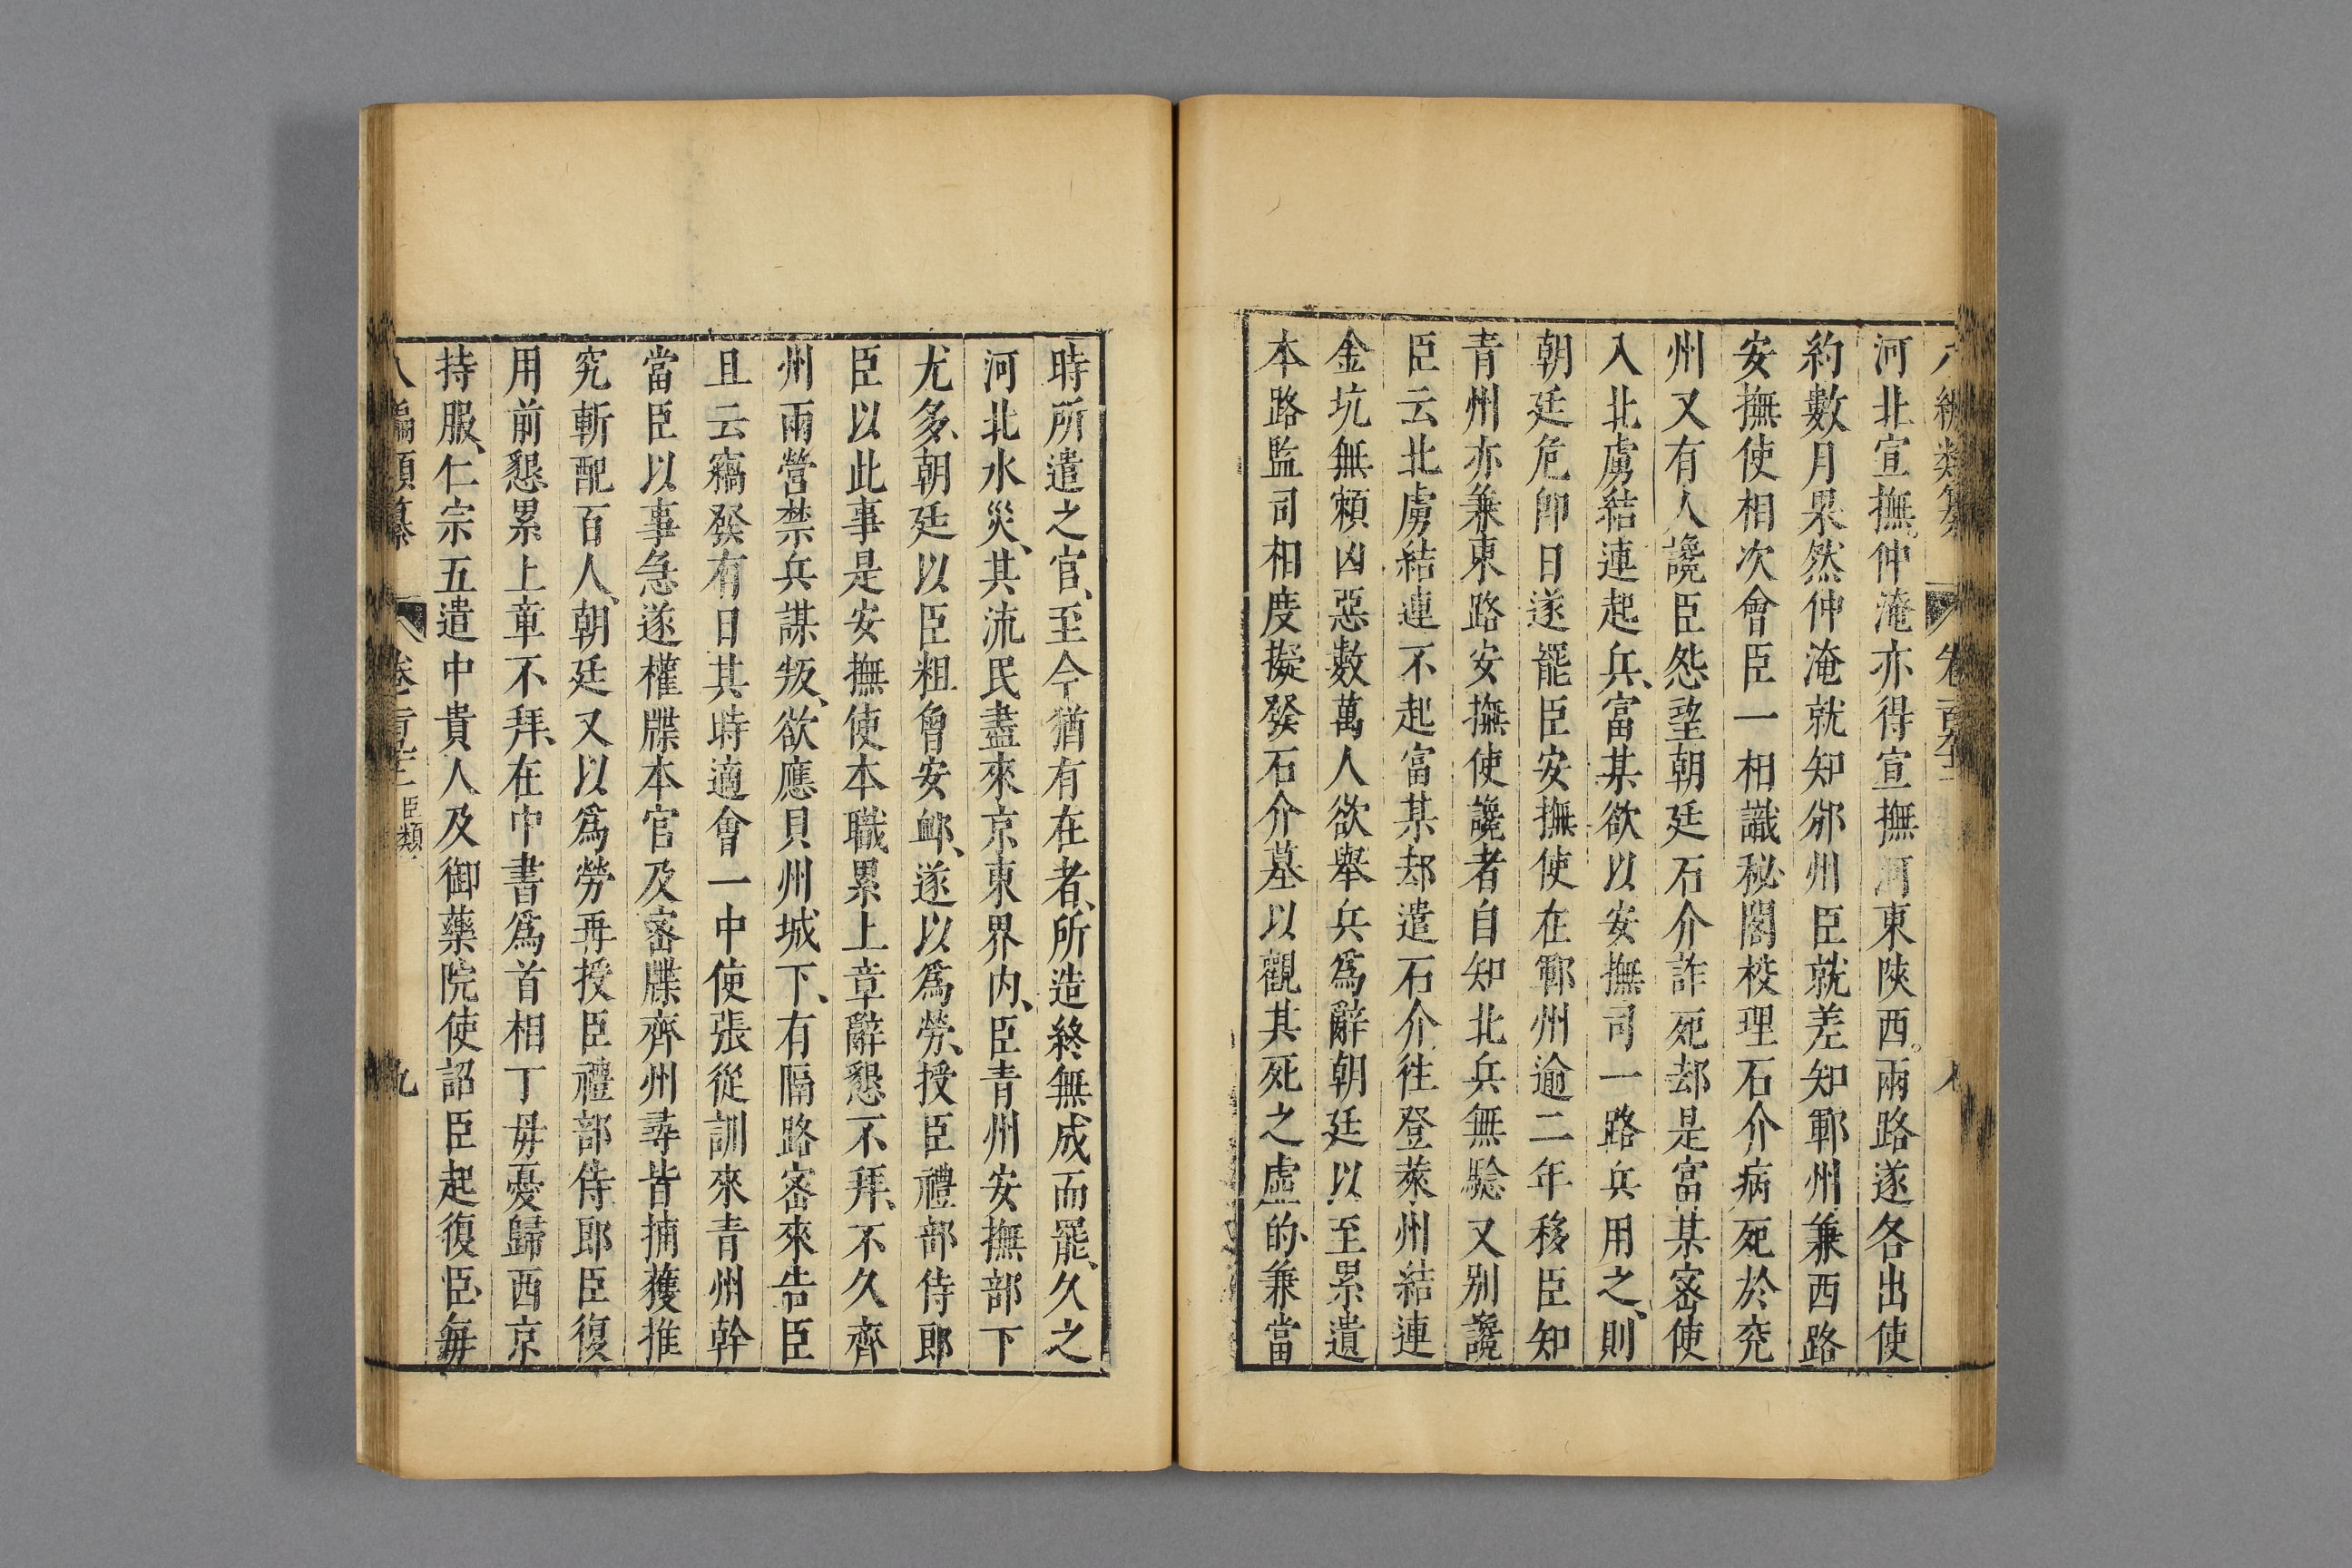 河北宣撫仲淹亦得宣撫河東陝西兩路遂各出使
約數月果然仲淹就知邠州臣就差知鄆州兼西路
安撫使相次會臣一相識秘閣校理石介病死於兖
州又有人讒臣怨望朝廷石介詐死却是富某密使
入北虜結連起兵富某欲以安撫司一路兵用之則
朝廷危卽日遂罷臣安撫使在鄆州逾二年移臣知
青州亦兼東路安撫使讒者自知北兵無驗又別讒
臣云北虜結連不起富某却遣石介徃登萊州結連
金坑無賴凶惡數萬人欲舉兵爲辭朝廷以至累遺
本路監司相度擬發石介墓以觀其死之虛的兼當
時所遣之官至今猶有在者所造終無成而罷久之
河北水災其流民盡來京東界内臣青州安撫部下
尤多朝廷以臣粗會安䘏遂以爲勞授臣禮部侍郎
臣以此事是安撫使本職累上章辭懇不拜不久齊
州兩營禁兵謀叛欲應貝州城下有隔路密來告臣
且云竊發有日其時適會一中使張從訓來青州幹
當臣以事急遂權牒本官及密牒齊州尋皆捕獲推
究斬配百人朝廷又以爲勞再授臣禮部侍郎臣復
用前懇累上章不拜在中書爲首相丁毋憂歸西京
持服仁宗五遣中貴人及御藥院使詔臣起復臣每
卷 臣類 九